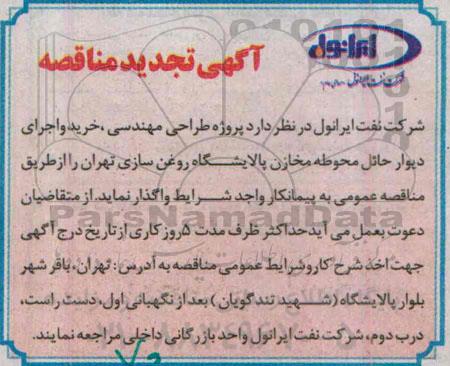 ایرانول
شرکت نفت ایرانول
آگهی تجدید مناقصه
شرکت نفت ایرانول در نظر دارد پروژه طراحی مهندسی ،خرید واجرای
دیوار حائل محوطه مخازن پالایشگاه روغن سازی تهران را ازطریق
مناقصه عمومی به پیمانکار واجد شرایط واگذار نماید. از متقاضیان
ParsNamadData
دعوت بعمل می آید حداکثر ظرف مدت ۵روز کاری از تاریخ درج آگهی
جهت اخذ شرح کار وشرایط عمومی مناقصه به آدرس: تهران، باقر شهر
بلوار پالایشگاه (شهید تندگویان ) بعد از نگهبانی اول، دست راست،
درب دوم، شرکت نفت ایرانول واحد بازرگانی داخلی مراجعه نمایند.